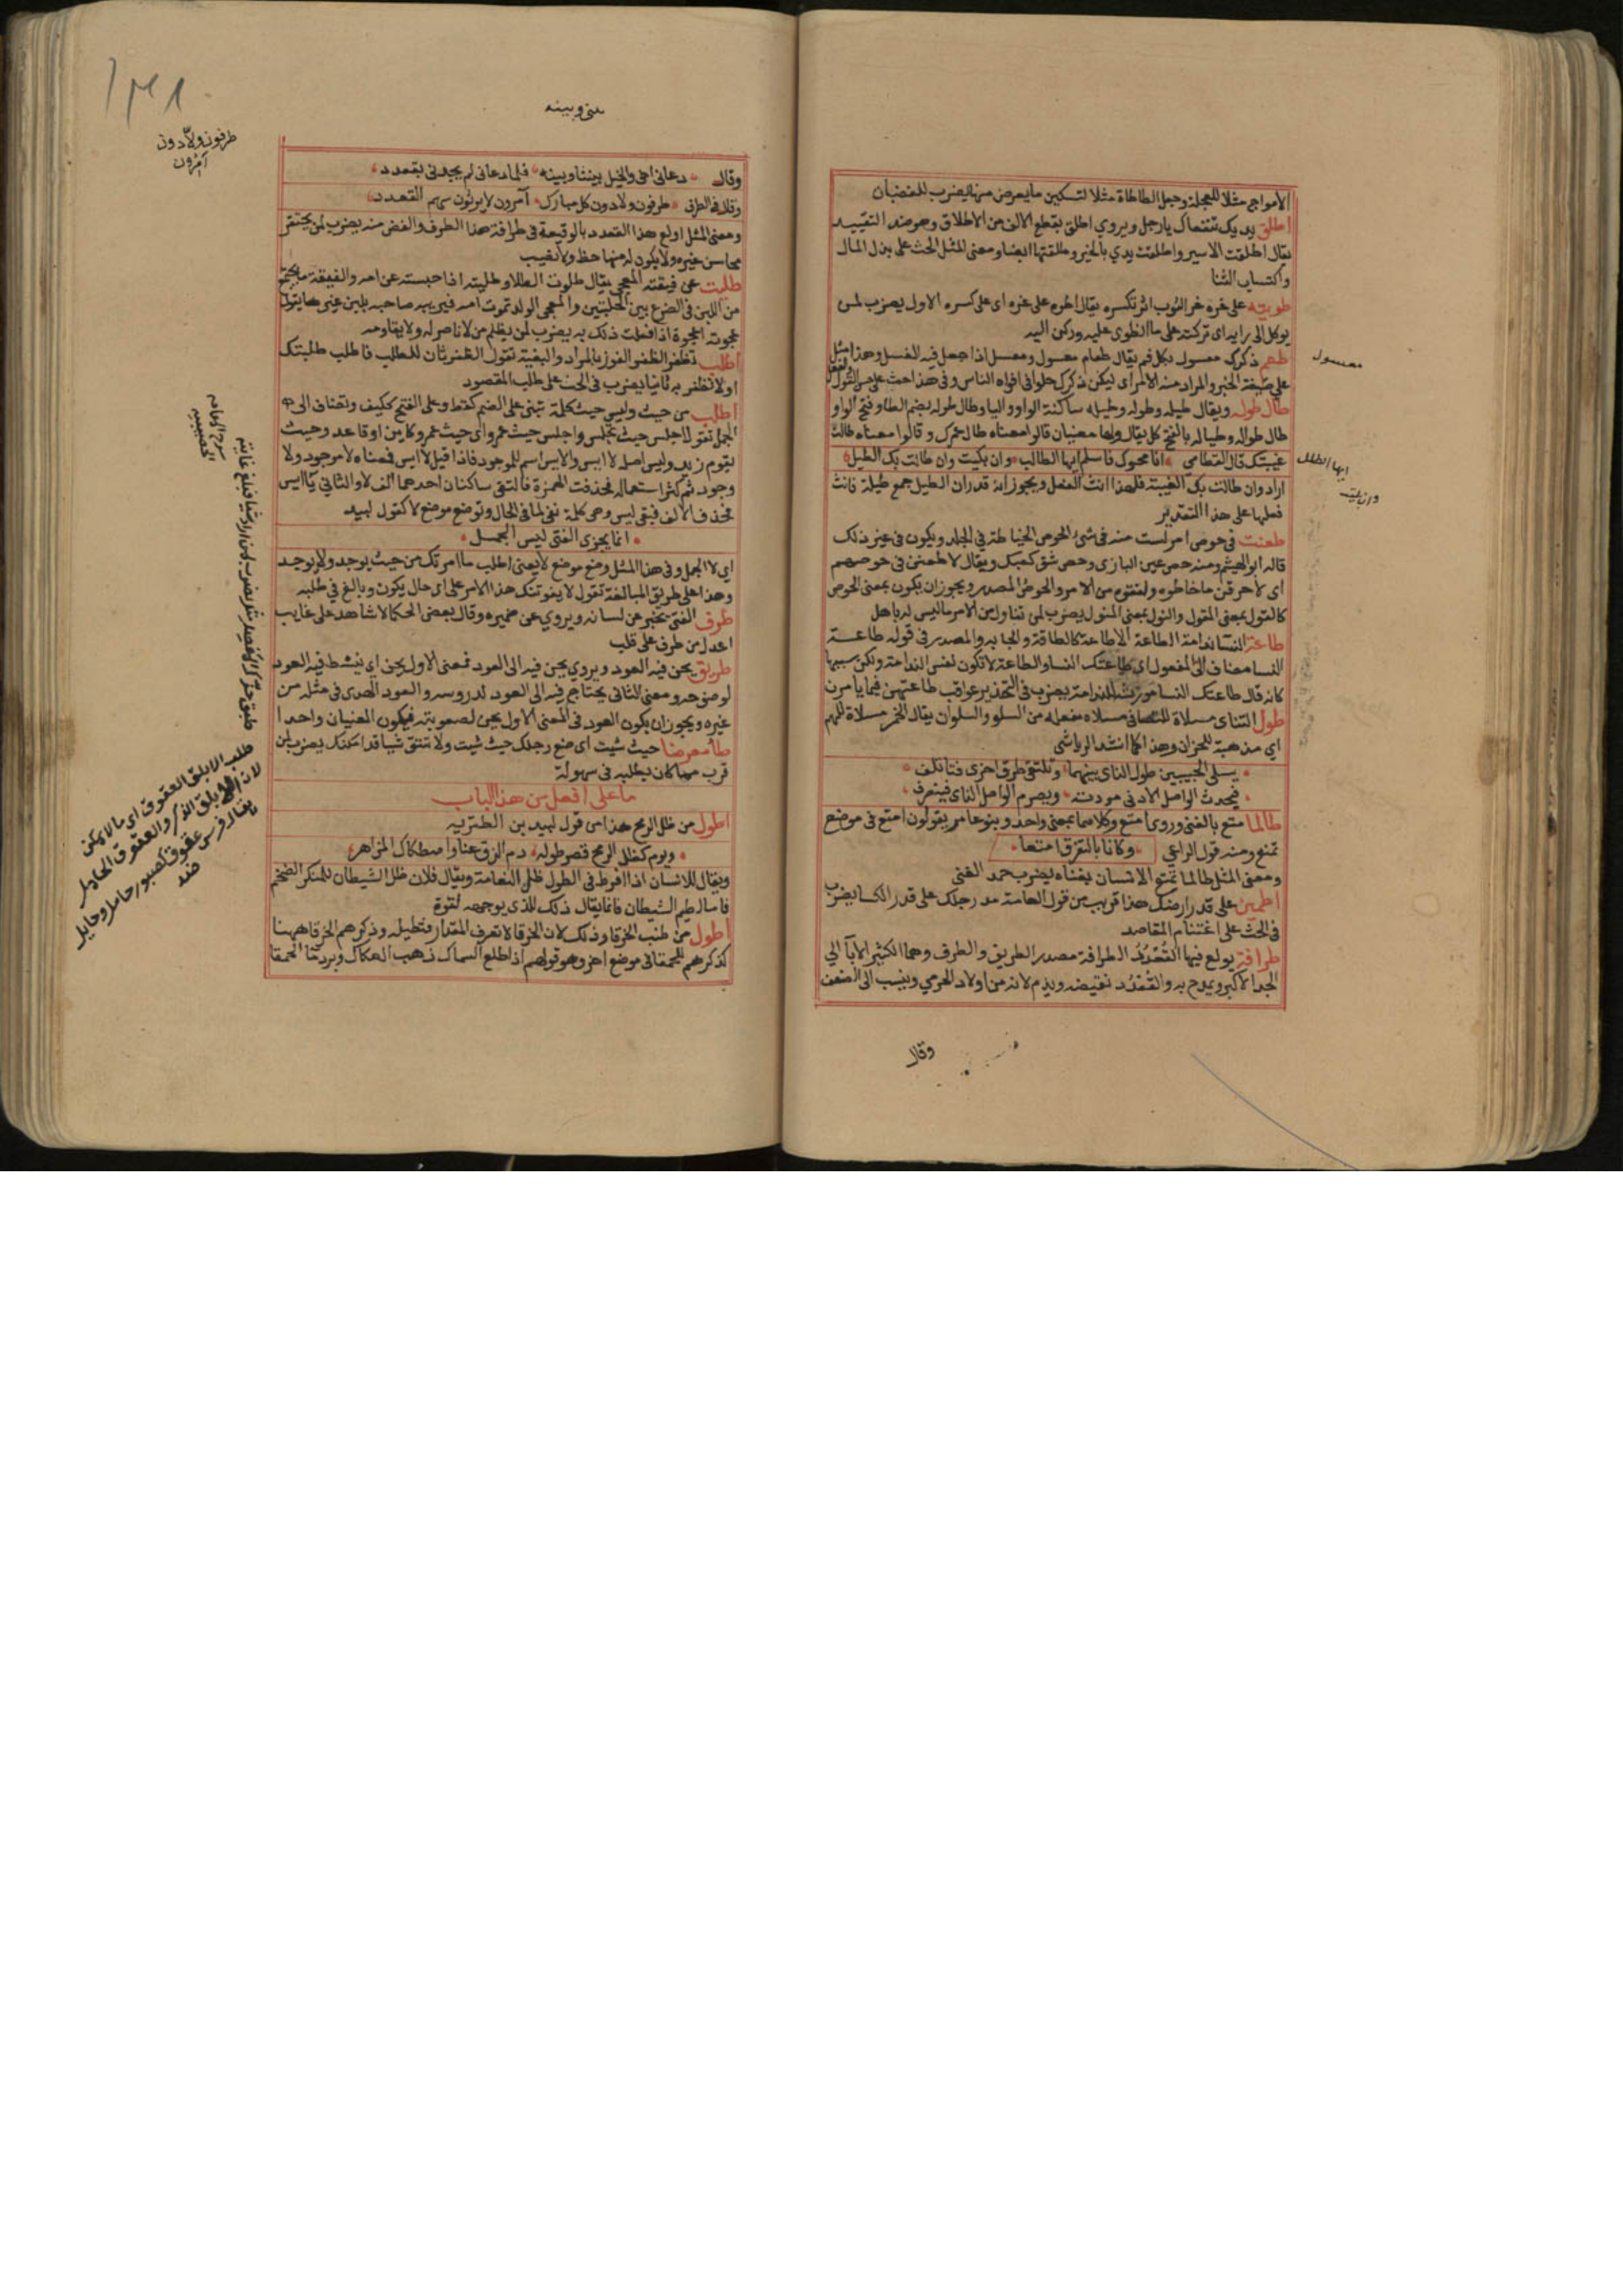 الأمواج مثلا للعجلة وجعل الطاطاة مثلا لتسكين ما يعرض منها يضرب للغضبان
اطلق يديك تنفعاك يا رجل ويروي اطلق بقطع الالف من الاطلاق وهو ضد التقييد
يقال اطلقت الاسير واطلقت يدي بالخير وطلقتها ايضا ومعنى المثل الحث على بذل المال
واكتساب الثنا
طويته على غره غر الثوب اثر تكسره يقال اطوه على غره اى على كسره الاول يضرب لمن
يوكل الى رايه اى تركته على ما انطوى عليه وركن اليه
طعم ذكرك معسول بكل فم يقال طعام معسول ومعسل اذا جعل فيه العسل وهذا مثل
على صيغة الخبر والمراد منه الامر اى ليكن ذكرك حلوا فى افواه الناس وفى هذا حث على حسن القول والفعل
طال طوله ويقال طيله وطوله وطيله ساكنة الواو واليا وطال طوله بضم الطا وفتح الواو
طال طواله وطياله بالفتح كل يقال ولها معنيان قالوا معناه طال عمرك وقالوا معناه طالت
غيبتك قال القطامى انا محيوك فاسلم ايها الطالب وان بكيت وان طالت بك الطيل
اراد وان طالت بك الغيبة فلهذا انث الفعل ويجوز انه قدر ان الطيل جمع طيلة فانث
فعلها على هذا التقدير
طعنت فى حوص امر لست منه فى شئ الحوص الخياطة فى الجلد ويكون فى غير ذلك
قاله ابو الهيثم ومنه حص عين البازى وحص شق كعبك ويقال لاطعنن فى حوصهم
اى لاخرقن ما خاطوه ولفقوه من الامر والحوص المصدر ويجوز ان يكون بمعنى المحوص
كالقول بمعنى المقول والنول بمعنى المنول يضرب لمن تناول من الامر ما ليس له باهل
طاعة النسا ندامة الطاعة الاطاعة كالطاقة والجابه والمصدر فى قوله طاعة
النسا مضاف الى المفعول اى طاعتك النسا والطاعة لا تكون نفس الندامة ولكن سببها
كانه قال طاعتك النسا مورثة للندامة يضرب فى التحذير عواقب طاعتهن فيما يامرن
طول التناى مسلاة للتصافى مسلاه مفعله من السلو والسلوان يقال الخمر مسلاة للهم
اى مذهبة للحزن وهذا كما انشد الرياشى
يسلى الحبيبين طول الناى بينهما وتلتقى طرق اخرى فتاتلف
فيحدث الواصل الادنى مودته ويصرم الواصل الناى فينصرف
طالما متع بالغنى وروى امتع وكلاهما بمعنى واحد وبنو عامر يقولون امتع فى موضع
تمتع ومنه قول الراعى وكانا بالتفرق امتعا
ومعنى المثل طالما تمتع الانسان بغناه يضرب حمد الغنى
اطمين على قدر ارضك هذا قريب من قول العامة مد رجلك على قدر الكسا يضرب
فى الحث على اغتنام المقاصد
طرافة يولع فيها القعدد الطرافة مصدر الطريق والطرف وهما الكثير الابآ الى
الجد الاكبر ويمدح به والقعدد نقيضه ويذم لانه من اولاد الهرمى وينسب الى الضعف
وقال
معسول
ايها الطلل
وان بليت
١٣٨
بينى وبينه
طرفون ولادون
آمرون
وقال دعانى اخى والخيل بيننا وبينه فلما دعانى لم يجدنى بقعدد
وقال فى الطرفى طرفون ولادون كل مبارك آمرون لا يرثون سهم القعدد
ومعنى المثل اولع هذا القعدد بالوقيعة فى طرافة هذا الطرف والغض منه يضرب لمن يحتقر
محاسن غيره ولا يكون له منها حظ ولا نصيب
طلبت عن فيقته العجى يقال طلوت الطلا وطليته اذا حبسته عن امه والفيقة ما يجتمع
من اللبن فى الضرع بين الحلبتين والعجى الولد تموت امه فيربيه صاحبه بلبن غيرها يقول
عجوته اعجوه اذا فعلت ذلك به يضرب لمن يظلم من لا ناصر له ولا يقاومه
اطلب تظفر الظفر الفوز بالمراد والبغية تقول الظفر ثان للطلب فاطلب طلبتك
اولا تظفر به ثانيا يضرب فى الحث على طلب المقصود
اطلب من حيث وليس حيث كلمة تبنى على الضم كقط وعلى الفتح ككيف وتضاف الى
الجمل تقول اجلس حيث تجلس واجلس حيث عمرو اى حيث عمرو كاين او قاعد وحيث
يقوم زيد وليس اصله لا ايس والايس اسم للموجود فاذا قيل لا ايس فمعناه لا موجود ولا
وجود ثم كثر استعماله فحذفت الهمزة فالتقى ساكنان احدهما الف لا والثانى يا ايس
فحذف الالف فبقى ليس وهى كلمة نفى لما فى الحال وتوضع موضع لا كقول لبيد
انما يجزى الفتى ليس الجمل
اى لا الجمل وفى هذا المثل وضع موضع لا يعنى اطلب ما امرتك من حيث يوجد ولا يوجد
وهذا على طريق المبالغة تقول لا يفوتنك هذا الامر على اى حال يكون وبالغ فى طلبه
طرف الفتى يخبر عن لسانه ويروي عن ضميره وقال بعض الحكما لا شاهد على غايب
اعدل من طرف على قلب
طريق يحن فيه العود ويروي يحن فيه الى العود فمعنى الاول يحن اى ينشط فيه العود
لوضوحه ومعنى الثانى يحتاج فيه الى العود لدروسه والعود اهدى فى مثله من
غيره ويجوز ان يكون العود فى المعنى الاول يحن لصعوبته فيكون المعنيان واحدا
طا معرضا حيث شيت اى ضع رجلك حيث شيت ولا تتق شيا قد امكنك يضرب لمن
قرب مما كان يطلبه فى سهولة
ما على افعل من هذا الباب
اطول من ظل الرمح هذا من قول لبيد بن الطثريه
ويوم كظل الرمح قصر طوله دم الزق عنا واصطكاك المزاهر
ويقال للانسان اذا افرط فى الطول ظل النعامة ويقال فلان ظل الشيطان للمنكر الضخم
فاما لطيم الشيطان فانما يقال ذلك للذى بوجهه لقوة
اطول من طنب الخرقا وذلك لان الخرقا لا تعرف المقدار فتطيله وذكرهم الخرقا ههنا
كذكرهم للحمقا فى موضع اخر وهو قولهم اذا طلع السماك ذهب العكاك وبرد ماء الحمقا
طلب الابلق العقوق اى ما لا يمكن
لان الابلق الذكر والعقوق الحامل
يقال فرس عقوق كصبور حامل وحايل
ضد